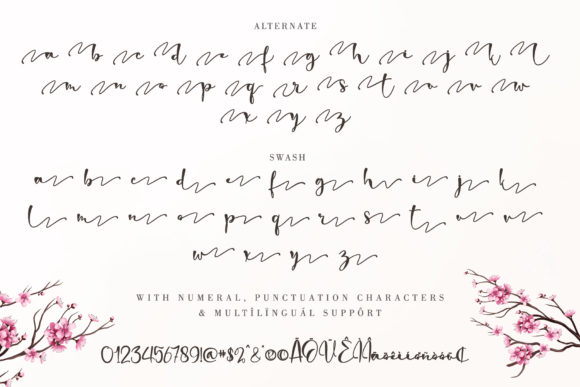 ALTERNATE
a b c d e f g h i j k l
m n o p q r s t u v w
x y z
SWASH
a b c d e f g h i j k
l m n o p q r s t u v
w x y z
WITH NUMERAL, PUNCTUATION CHARACTERS
& MULTÌLÌNGUÃL SUPPÔRT
0123456789!@#$